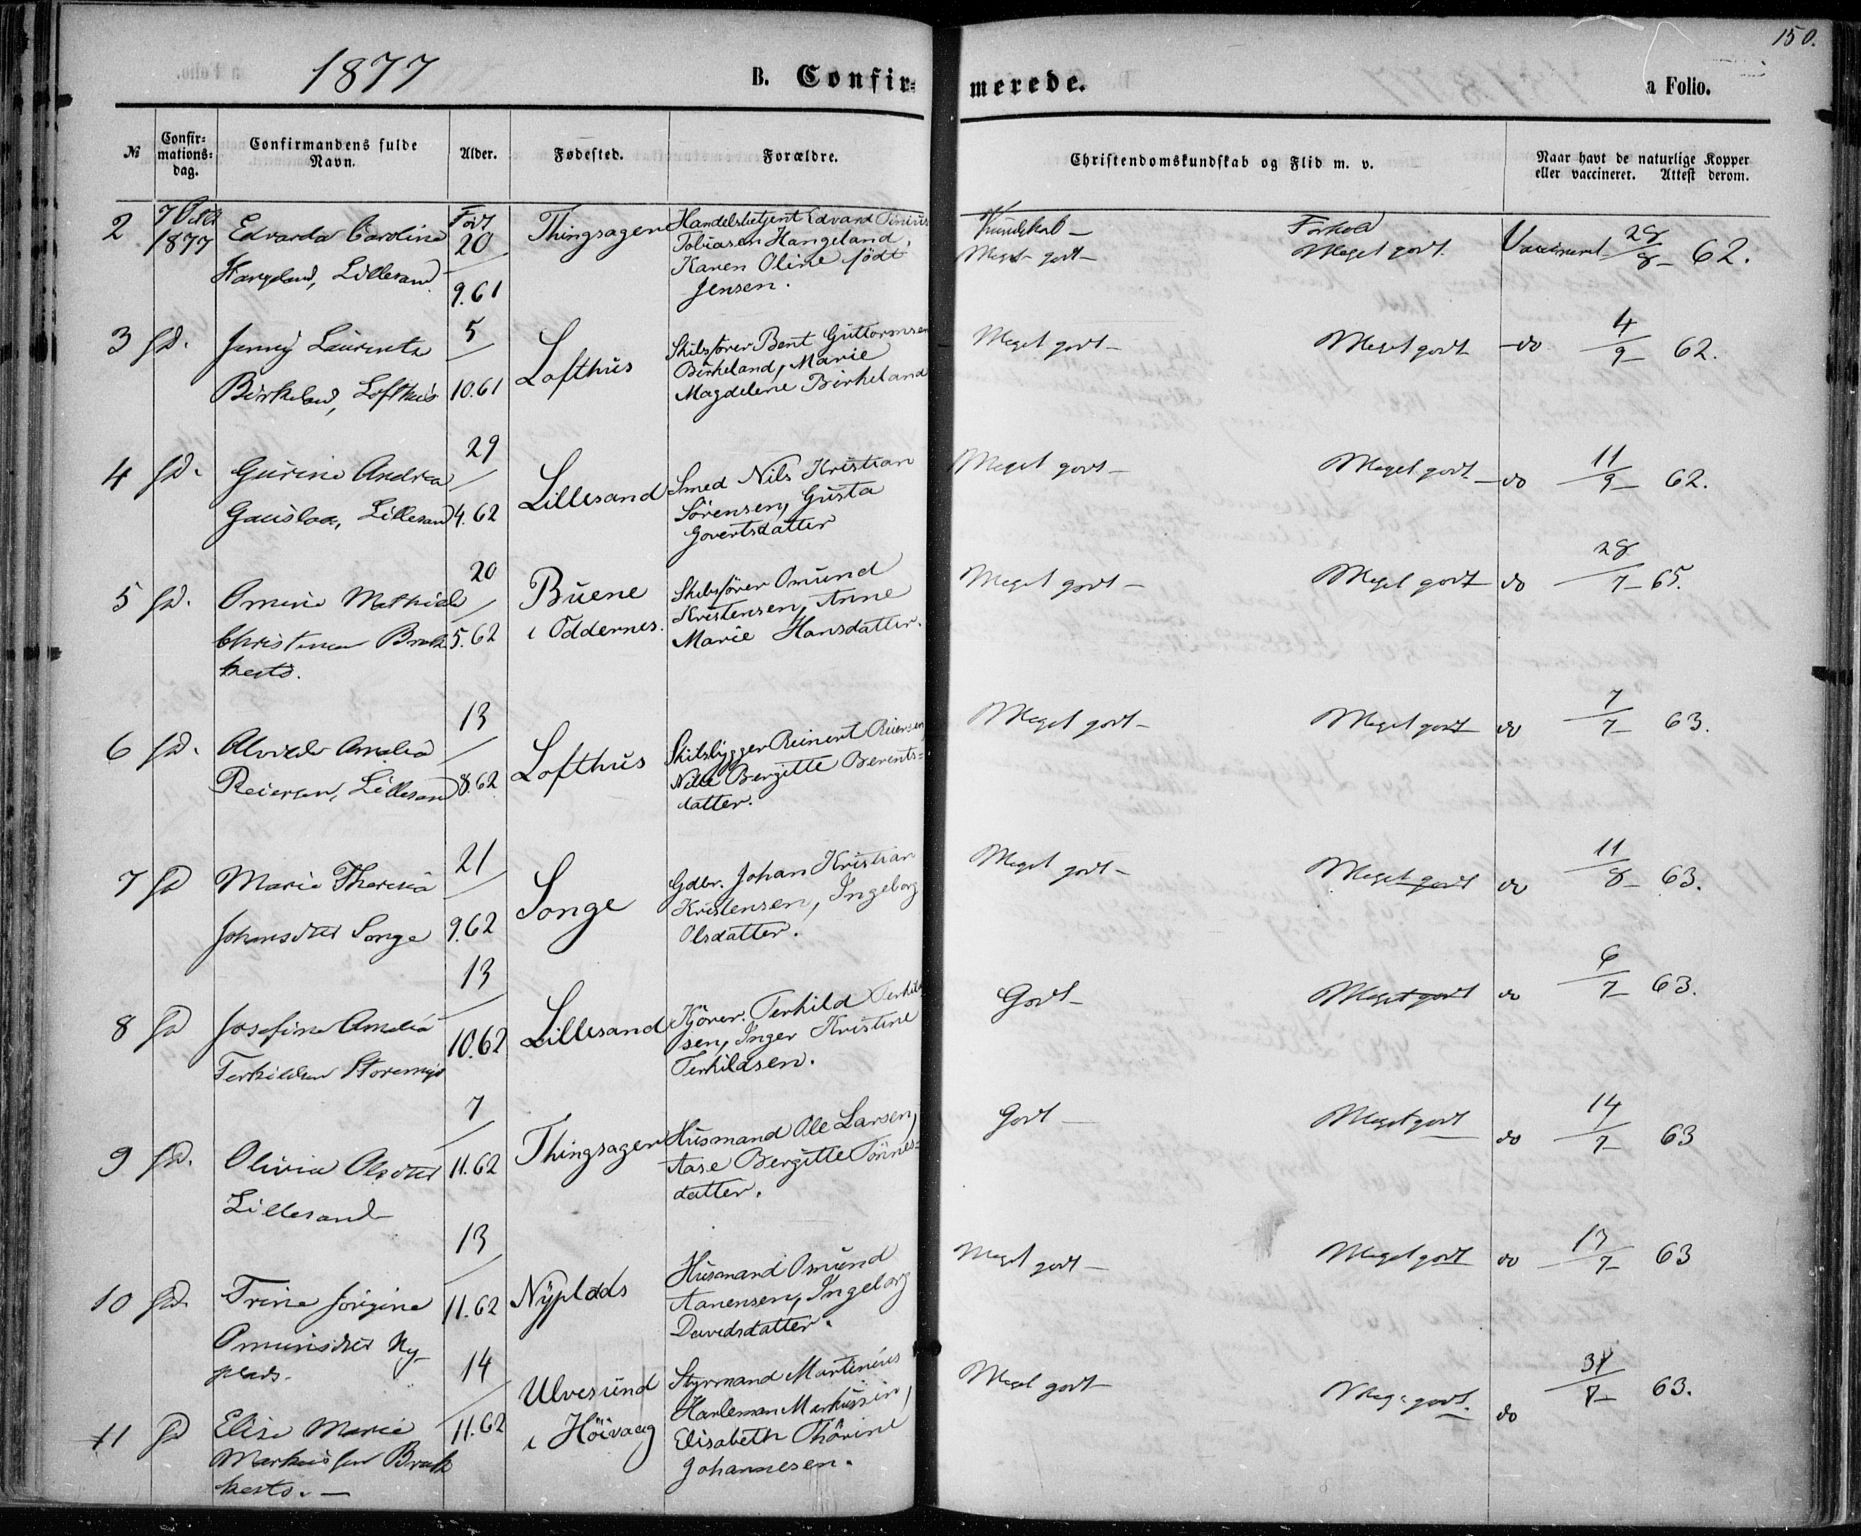 150.
1877
B. Confir-
merede.
a Folio.
№
Confir-
mations-
dag.
Confirmandens fulde
Navn.
Alder.
Fødested.
Forældre.
Christendomskundskab og Flid m. v.
Naar havt de naturlige Kopper
eller vaccineret. Attest derom.
2
7 Octbr
1877
Edvarda Caroline
Hangeland, Lillesand
Født
20
9.61
Thingsagen
Handelsbetjent Edvard Tinius
Tobiasen Hangeland,
Karen Oline født
Jensen.
Kundskab -
Meget godt -
Forhold
Meget godt.
Vaccineret 28/8 - 62.
3 sd.
Jenny Laurenta
Birkeland, Lofthus
5
10.61
Lofthus
Skibsfører Bent Guttormsen
Birkeland, Marie
Magdelene Birkeland
Meget godt -
Meget godt
- do 4/9 - 62.
4 sd.
Gurine Andrea
Gauslaa, Lillesand
29
4.62
Lillesand
Smed Nils Kristian
Sörensen, Gusta
Govertsdatter
Meget godt -
Meget godt
- do 11/9 - 62.
5 sd.
Omine Mathilde
Christensen Bræk
kestø.
20
5.62
Buene
i Oddernes.
Skibsfører Omund
Kristensen, Anne
Marie Hansdatter.
Meget godt -
Meget godt
do 28/7 - 65.
6 sd.
Alvilde Amalia
Reiersen, Lillesand
13
8.62
Lofthus
Skibsbygger Reinert Reiersen
Nille Bergitte Berents-
datter.
Meget godt -
Meget godt
do 7/7 63.
7 sd
Marie Theresia
Johansdtr Songe
21
9.62
Songe
Gdbr. Johan Kristian
Kristensen, Ingeborg
Olsdatter.
Meget godt -
Meget godt
do 11/8 - 63.
8 sd
Josefine Amalia
Terkildsen Storemyr
13
10.62
Lillesand
Kjörer. Terkild Terkild
sen, Inger Kristine
Terkildsen.
Godt -
Meget godt
do 6/7 - 63.
9 sd.
Olivia Olsdtr
Lillesand
7
11.62
Thingsagen
Husmand Ole Larsen,
Aase Bergitte Tönnes-
datter.
Godt -
Meget godt
do 14/7 - 63
10 sd.
Trine Jörgine
Omundsdtr Ny
plads.
13
11.62
Nyplads
Husmand Omund
Aanensen, Ingeborg
Davidsdatter.
Meget godt -
Meget godt
do 13/7 - 63
11 sd
Elise Marie
Markussen Bræk
kestø. -
14
11.62
Ulvesund
i Höivaag
Styrmand Martinius
Harleman Markussen,
Elisabeth Thörine
Johannesen.
Meget godt -
Meget godt.
do 31/8 - 63.